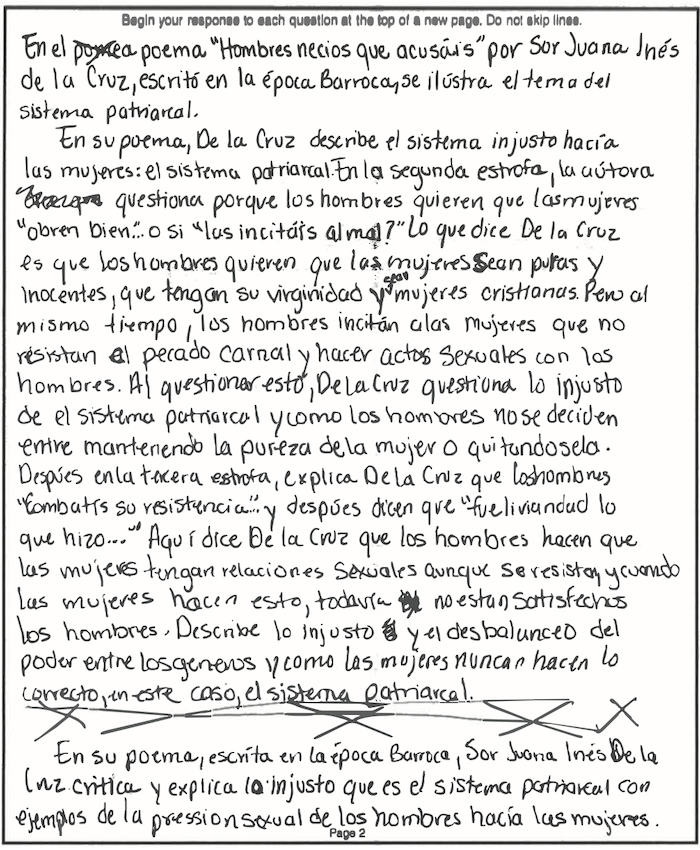 Begin your response to each question at the top of a new page. Do not skip lines.
En el poema "Hombres necios que acusáis" por Sor Juana Inés
de la Cruz, escrito en la época Barroca, se ilustra el tema del
sistema patriarcal.
En su poema, De la Cruz describe el sistema injusto hacía
las mujeres: el sistema patriarcal. En la segunda estrofa, la aútora
questiona porque los hombres quieren que las mujeres
"obren bien..." o si "las incitáis al mal?" Lo que dice De la Cruz
es que los hombres quieren que las mujeres sean puras y
inocentes, que tengan su virginidad y sean mujeres cristianas. Pero al
mismo tiempo, los hombres incitán a las mujeres que no
resistan el pecado carnal y hacer actos sexuales con los
hombres. Al questionar esto, De la Cruz questiona lo injusto
de el sistema patriarcal y como los hombres no se deciden
entre manteniendo la pureza de la mujer o quitandosela.
Despúes en la tercera estrofa, explica De la Cruz que los hombres
"combatís su resistencia..." y despúes dicen que "fue liviandad lo
que hizo..." Aquí dice De la Cruz que los hombres hacen que
las mujeres tengan relaciones sexuales aunque se resistan, y cuando
las mujeres hacen esto, todavía no estan satisfechos
los hombres. Describe lo injusto y el desbalanceo del
poder entre los generos y como las mujeres nuncan hacen lo
correcto, en este caso, el sistema patriarcal.
En su poema, escrita en la época Barroca, Sor Juana Inés De la
Cruz critica y explica lo injusto que es el sistema patriarcal con
ejemplos de la pression sexual de los hombres hacía las mujeres.
Page 2